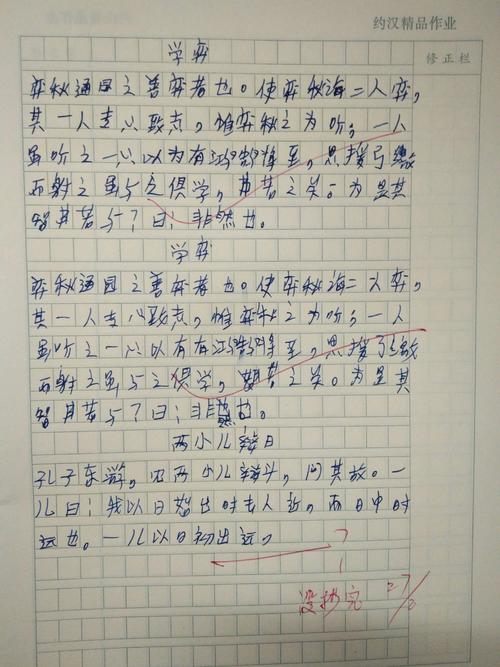 约汉精品作业
修正栏
学弈
弈秋通国之善弈者也。使弈秋海二人弈,
其一人专心致志,惟弈秋之为听;一人
虽听之一心以为有鸿鹄将至,思援弓缴
而射之虽与之俱学,弗若之矣。为是其
智其若与?曰:非然也。
学弈
弈秋通国之善弈者也。使弈秋海二人弈,
其一人专心致志,惟弈秋之为听;一人
虽听之一心以有有鸿鹄将至,思援弓缴
而射之虽与之俱学,弗若之矣。为是其
智其若与?曰:非然也。
两小儿辩日
孔子东游,见两小儿辩斗,问其故。一
儿曰:我以日始出时去人近,而日中时
远也。一儿以日初出远,
?
没抄完